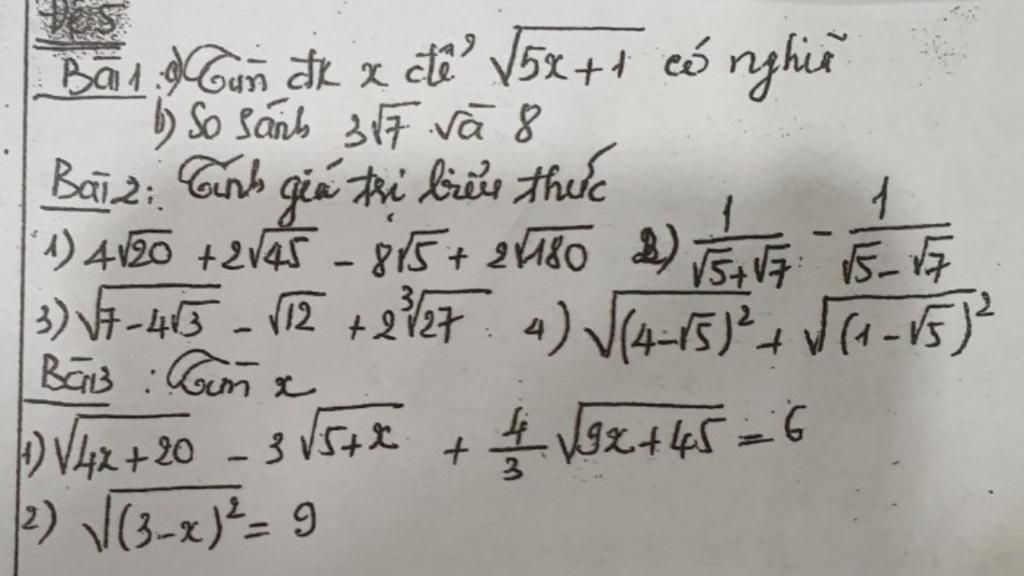 Đề 5
Bài 1: a) Tìm đk x để √(5x+1) có nghĩa
b) So sánh 3√7 và 8
Bài 2: Tính giá trị biểu thức
1) 4√20 + 2√45 - 8√5 + 2√180 2) 1/(√5+√7) - 1/(√5-√7)
3) √(7-4√3) - √12 + 2∛27 4) √((4-√5)²) + √((1-√5)²)
Bài 3: Tìm x
1) √(4x+20) - 3√(5+x) + 4/3 √(9x+45) = 6
2) √((3-x)²) = 9